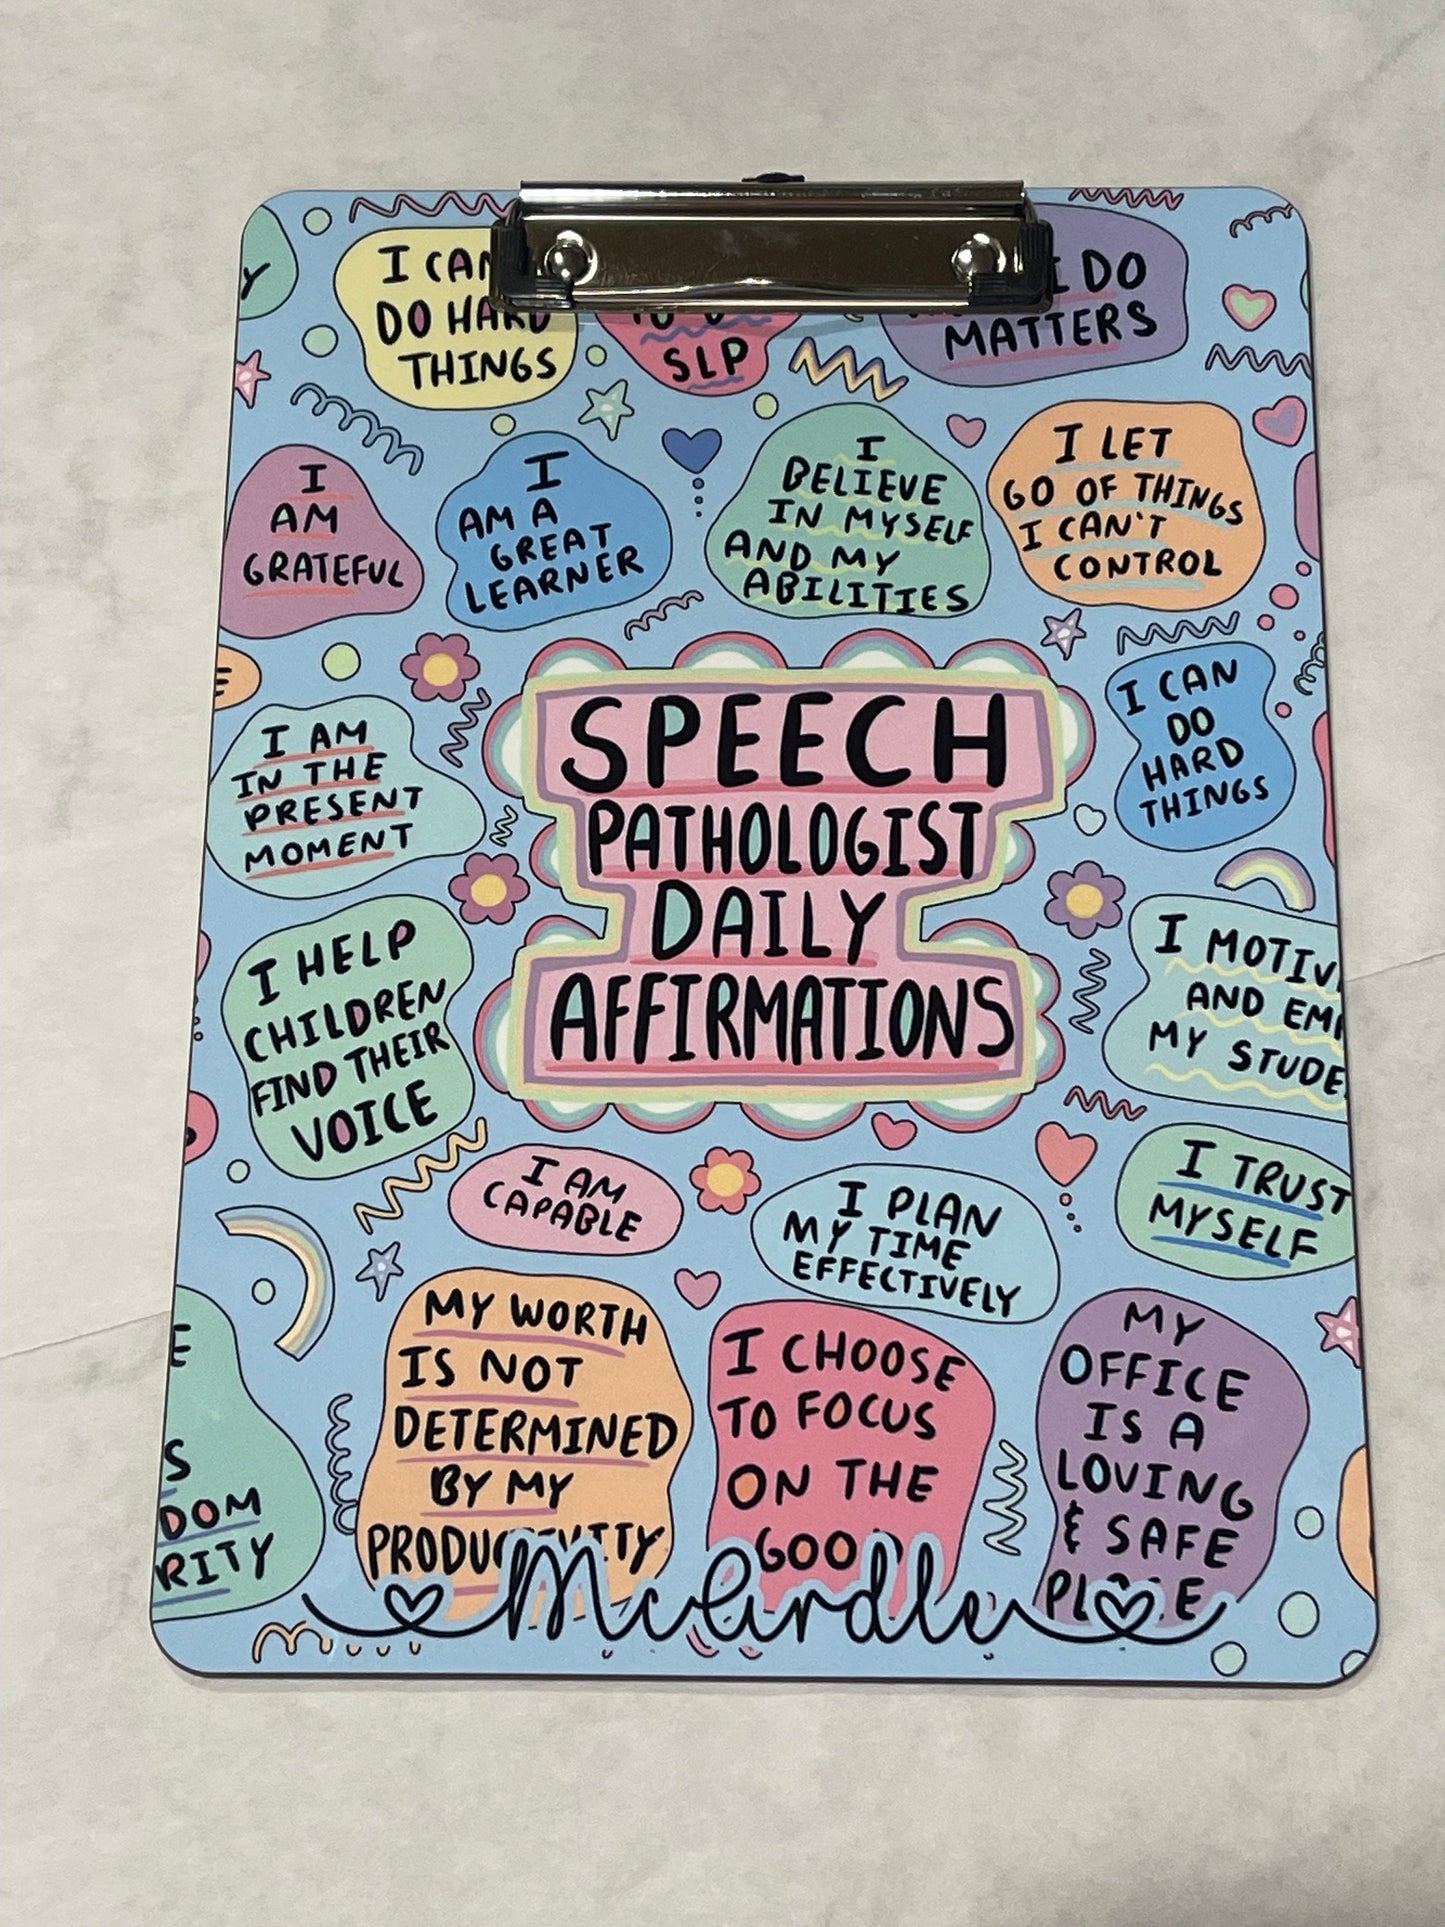 Y
I CAN
DO HARD
THINGS
SLP
I DO
MATTERS
I
AM
GRATEFUL
I
AM A
GREAT
LEARNER
I
BELIEVE
IN MYSELF
AND MY
ABILITIES
I LET
GO OF THINGS
I CAN'T
CONTROL
E
I AM
IN THE
PRESENT
MOMENT
SPEECH
PATHOLOGIST
DAILY
AFFIRMATIONS
I CAN
DO
HARD
THINGS
I HELP
CHILDREN
FIND THEIR
VOICE
I MOTIV
AND EM
MY STUDE
I AM
CAPABLE
I PLAN
MY TIME
EFFECTIVELY
I TRUST
MYSELF
E
S
DOM
RITY
MY WORTH
IS NOT
DETERMINED
BY MY
PRODUCTIVITY
I CHOOSE
TO FOCUS
ON THE
GOOD
MY
OFFICE
IS A
LOVING
& SAFE
PLACE
McArdle